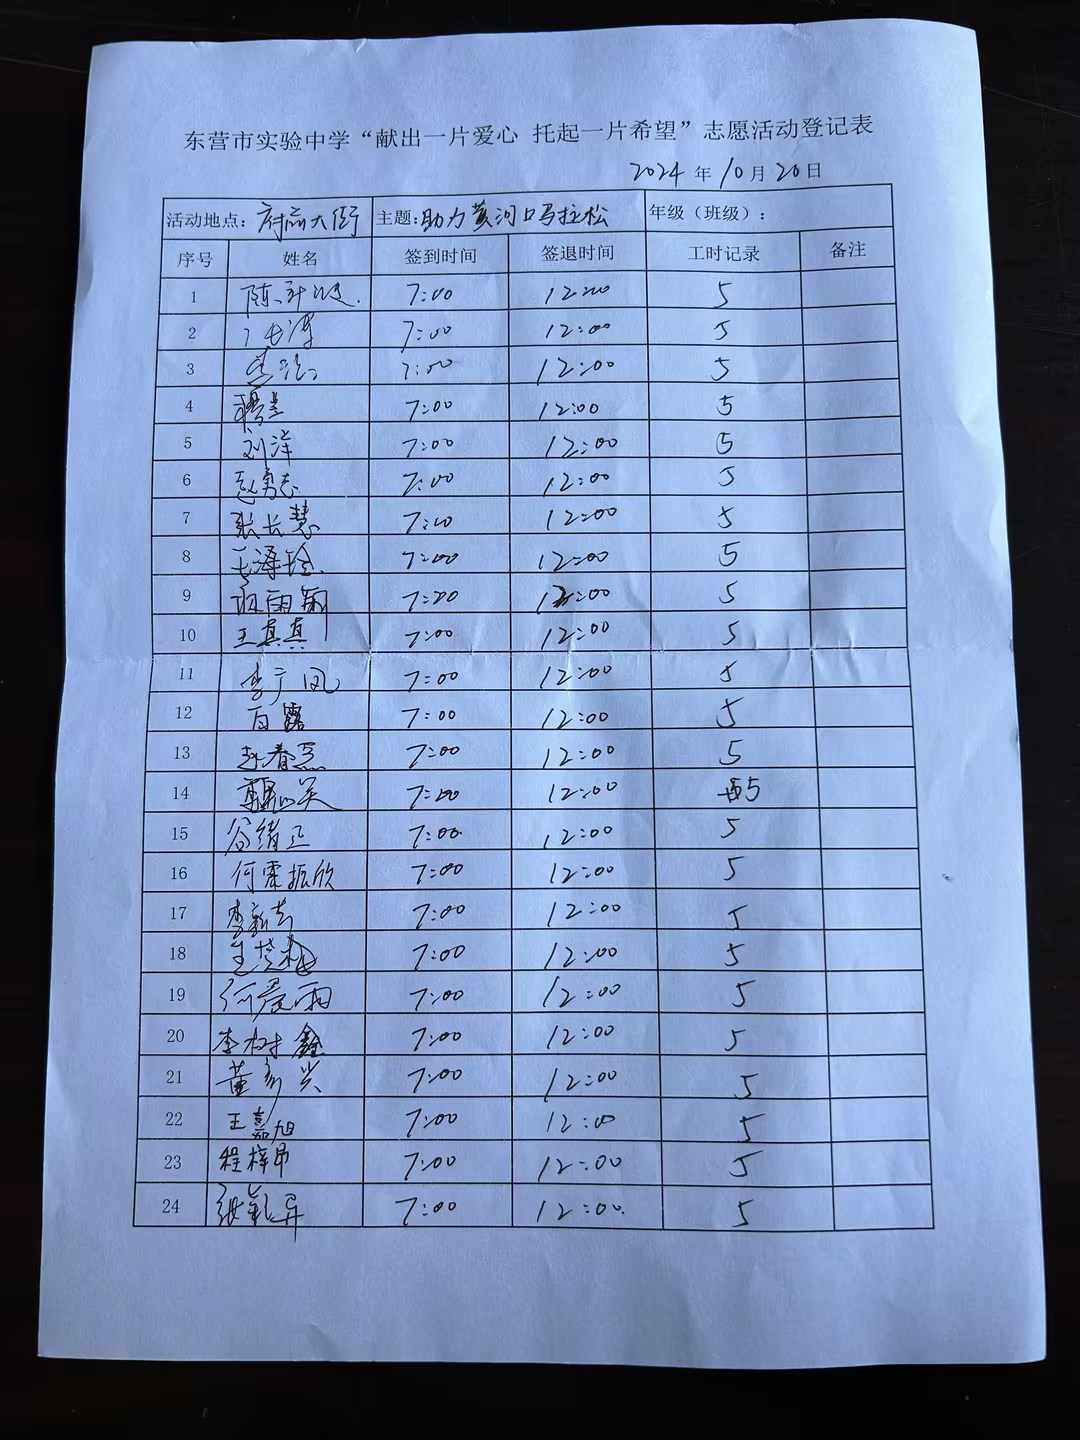 东营市实验中学“献出一片爱心 托起一片希望”志愿活动登记表
2024年10月20日
活动地点：府前大街 主题：助力黄河口马拉松 年级（班级）：
序号 姓名 签到时间 签退时间 工时记录 备注
1 7:00 12:00 5
2 7:00 12:00 5
3 7:00 12:00 5
4 7:00 12:00 5
5 刘洋 7:00 12:00 5
6 赵勇志 7:00 12:00 5
7 张长慧 7:00 12:00 5
8 王泽玲 7:00 12:00 5
9 7:00 12:00 5
10 王真真 7:00 12:00 5
11 李广凤 7:00 12:00 5
12 白露 7:00 12:00 5
13 7:00 12:00 5
14 7:00 12:00 5
15 谷绪正 7:00 12:00 5
16 何霈振欣 7:00 12:00 5
17 7:00 12:00 5
18 7:00 12:00 5
19 7:00 12:00 5
20 李树鑫 7:00 12:00 5
21 董彦兴 7:00 12:00 5
22 王嘉旭 7:00 12:00 5
23 程梓昂 7:00 12:00 5
24 7:00 12:00 5